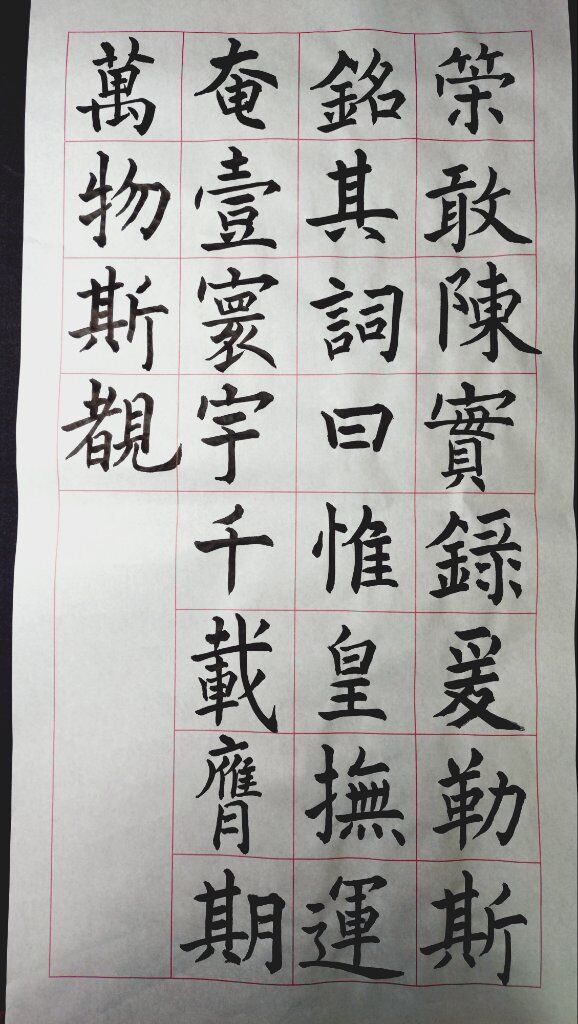 策敢陳實錄爰勒斯
銘其詞曰惟皇撫運
奄壹寰宇千載膺期
萬物斯覩